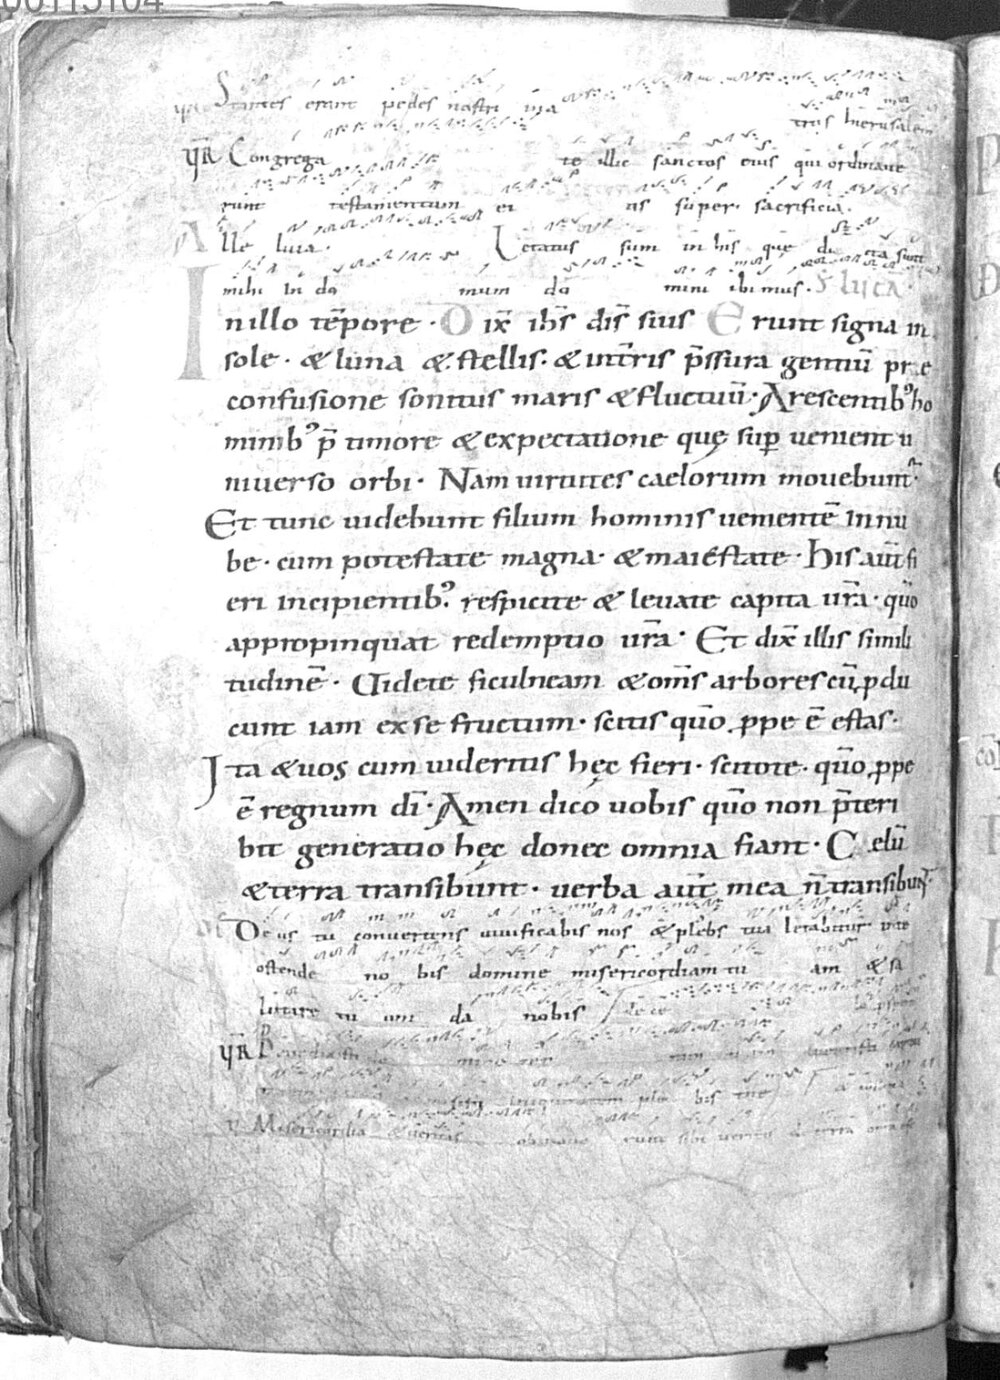 Stantes erant pedes nostri in a
triis hierusalem
Congrega te illic sanctos eius qui ordinaue
runt testamentum ei us super sacrificia.
Alle luia. Letatus sum in his quę dicta sunt
mihi in do mum do mini ibimus. S LUCA.
In illo tēpore · Dix̄ ih̄s dis̄ suis Erunt signa in
sole · & luna & stellis · & int̄ris p̄ssura gentiū prae
confusione sonitus maris & fluctuū · Arescentibꝰ ho
minibꝰ p̄ timore & expectatione quę suꝑ uenient u
niuerso orbi · Nam uirtutes caelorum mouebunt̄
Et tunc uidebunt filium hominis uenientē in nu
be · cum potestate magna · & maiestate · His aut̄ fi
eri incipientibꝰ · respicite & leuate capita ur̄a · quō
appropinquat redemptio ur̄a · Et dix̄ illis simili
tudinē · Uidete ficulneam & om̄s arbores cū ꝓdu
cunt iam ex se fructum · scitis quō ꝓpe ē estas ·
Ita & uos cum uideritis hęc fieri · scitote · quō ꝓpe
ē regnum dī · Amen dico uobis quō non p̄teri
bit generatio hęc donec omnia fiant · Celū
& terra transibunt · uerba aut̄ mea n̄ transibunt̄
Deus tu conuertens uiuificabis nos & plebs tua letabitur in te
ostende no bis domine misericordiam tu am & sa
lutare tu um da nobis
Misericordia & ueritas